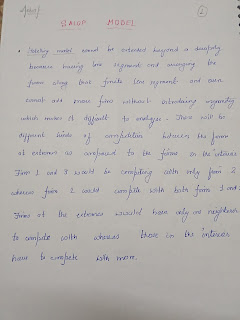 ①
SALOP MODEL
• Hotelling model cannot be extended beyond a duopoly
because having line segment and arranging the
firms along that finite line segment and even
cannot add more firms without introducing asymmetry
which makes it difficult to analyze. There will be
different kinds of competition between the firms
at extremes as compared to the firms in the interior
Firm 1 and 3 would be competing with only firm 2
whereas firm 2 would compete with both firm 1 and 3
Firms at the extremes would have only one neighbour
to compete with whereas those in the interior
have to compete with more.